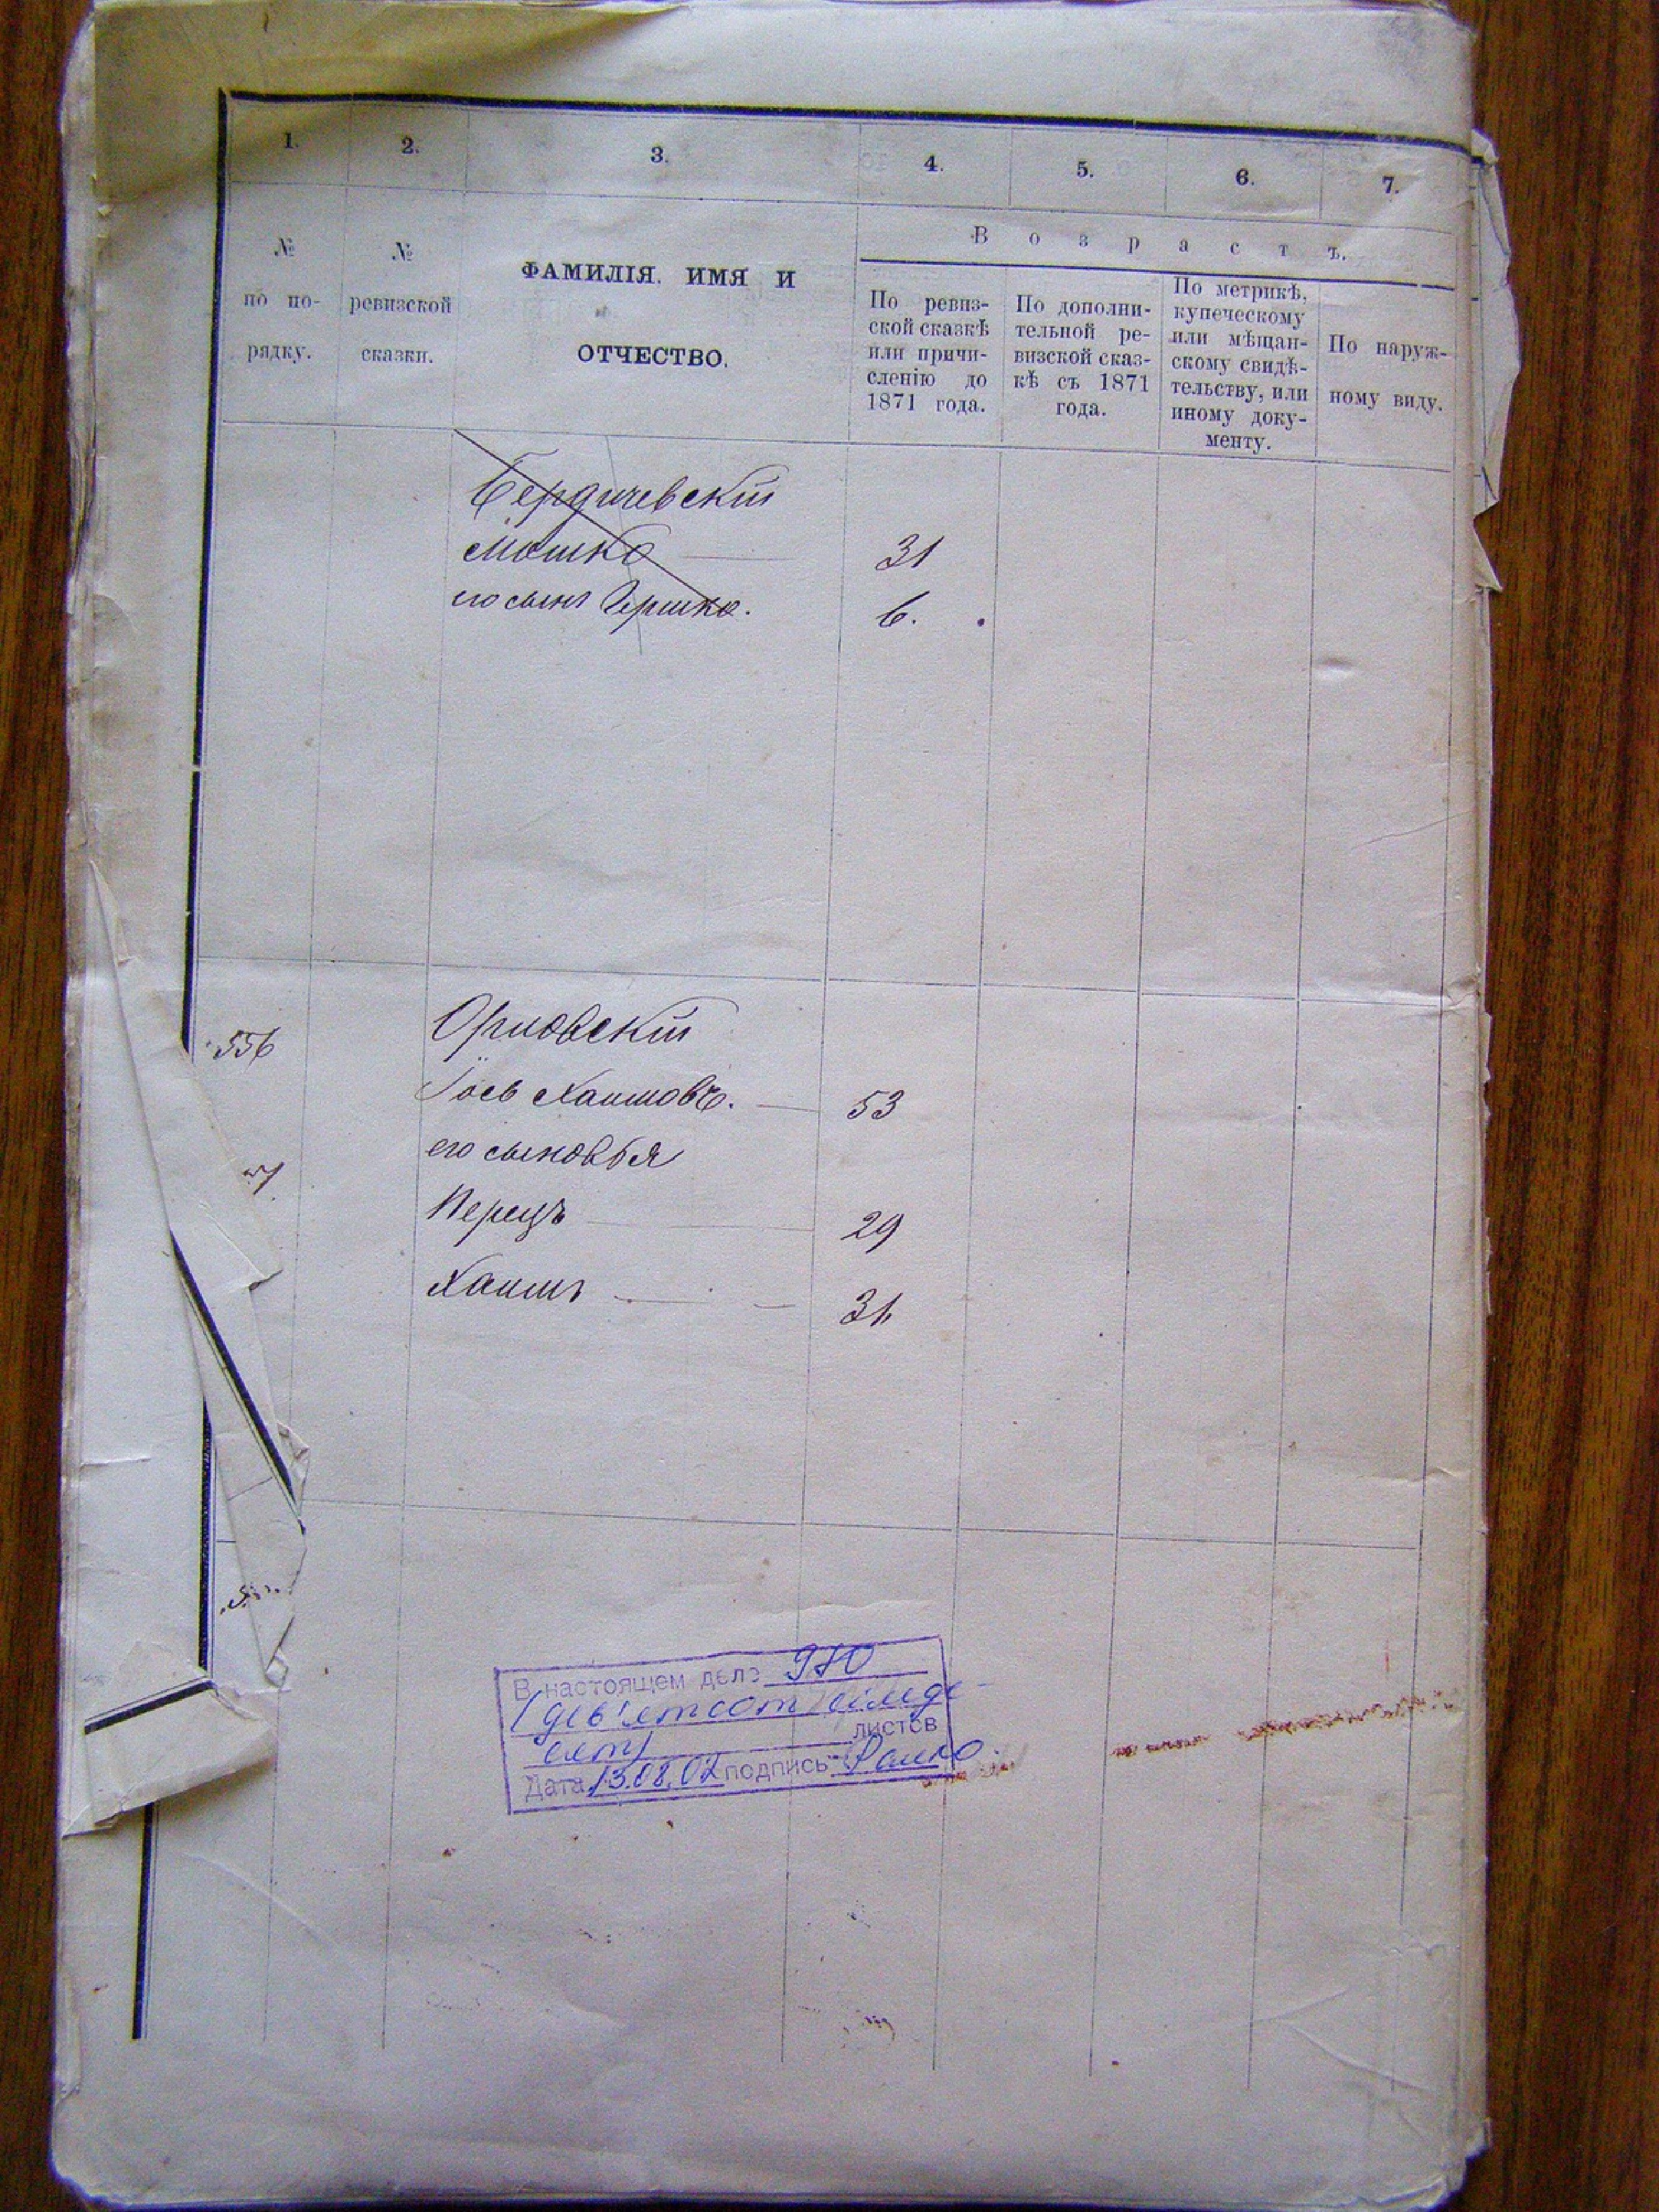 1. 2. 3. 4. 5. 6. 7.
№
по по-
рядку.
№
ревизской
сказки.
ФАМИЛІЯ. ИМЯ И
ОТЧЕСТВО.
Возрастъ.
По ревиз-
ской сказкѣ
или причи-
сленію до
1871 года.
По дополни-
тельной ре-
визской сказ-
кѣ съ 1871
года.
По метрикѣ,
купеческому
или мѣщан-
скому свидѣ-
тельству, или
иному доку-
менту.
По наруж-
ному виду.
Бердичевскій
Мошко 31
его сынъ Гершко. 6.
556 Орловскій
Іось Хаимовъ. 53
его сыновья
Перецъ 29
Хаимъ 31
В настоящем деле 970
(дев'ятсот сімде-
сят)
листов
Дата 13.08.02 подпись